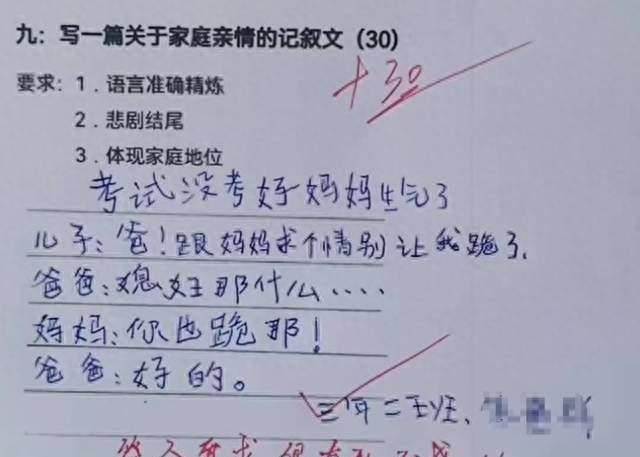 九：写一篇关于家庭亲情的记叙文（30）
+30
要求：1．语言准确精炼
2．悲剧结尾
3．体现家庭地位
考试没考好妈妈生气了
儿子：爸！跟妈妈求个情别让我跪了.
爸爸：媳妇那什么····
妈妈：你也跪那！
爸爸：好的。
三年二班.